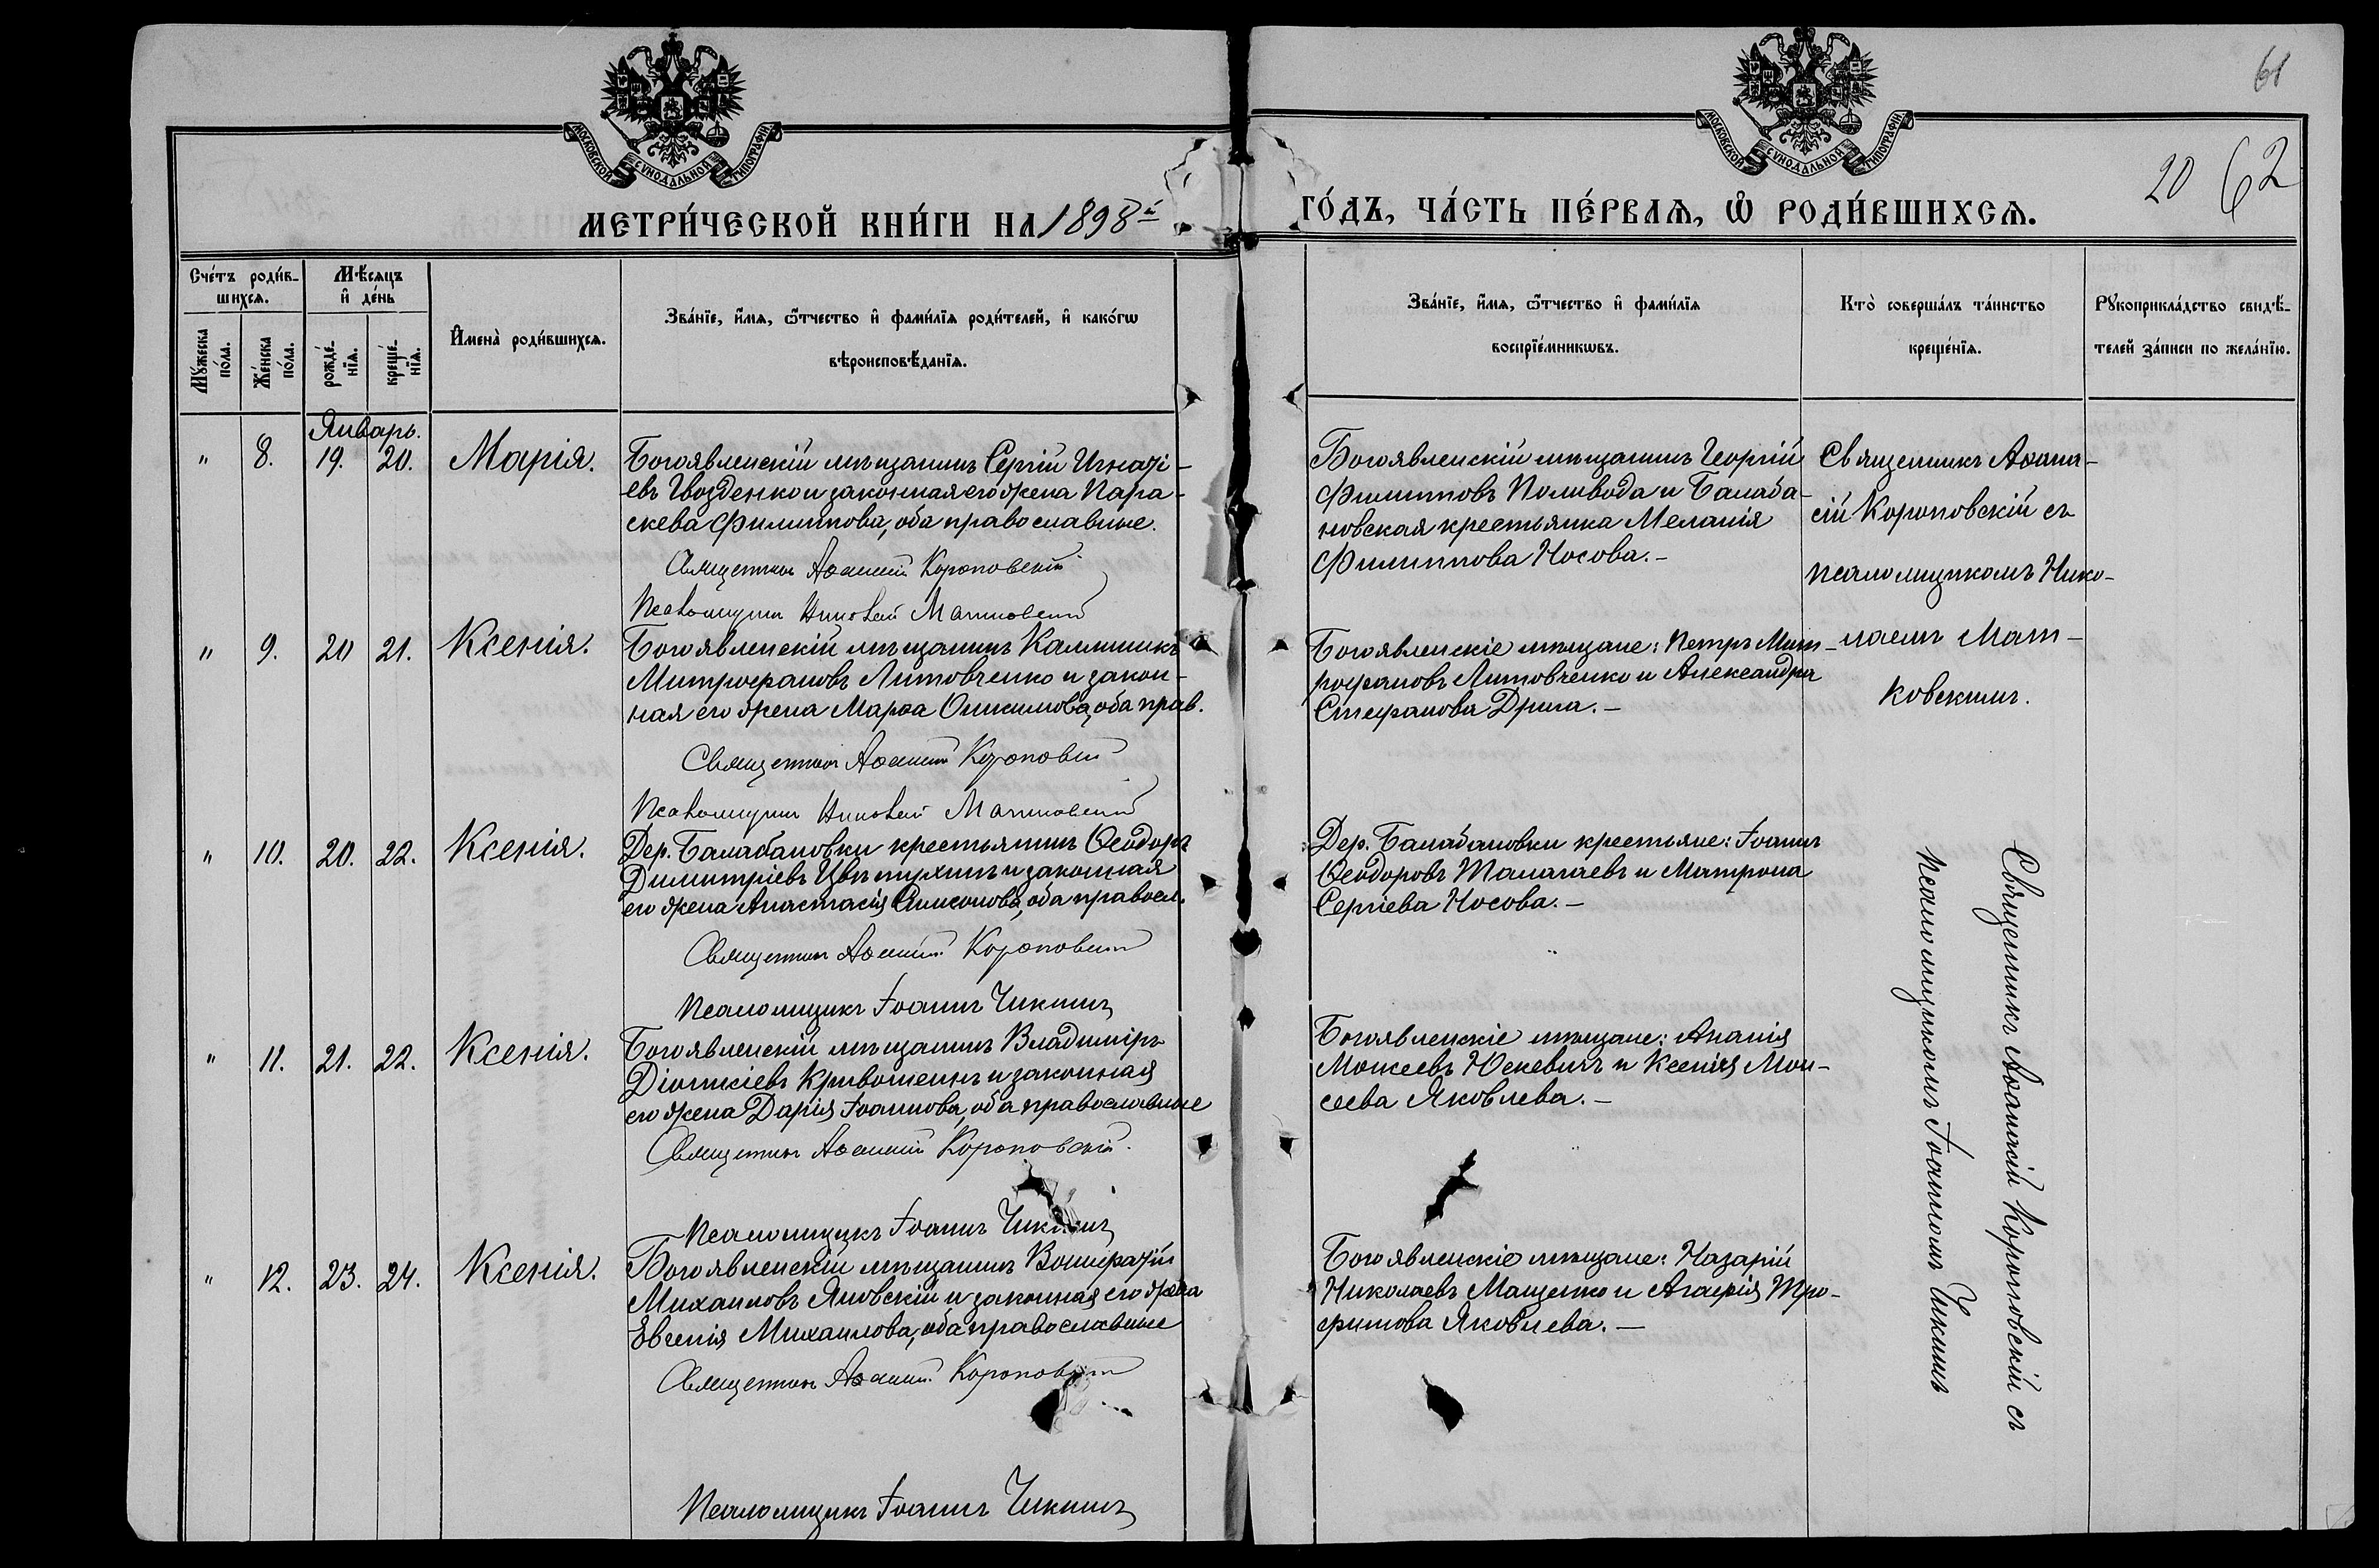 61
20 62
МОСКОВСКОЙ СѴНОДАЛЬНОЙ ТИПОГРАФІИ
МОСКОВСКОЙ СѴНОДАЛЬНОЙ ТИПОГРАФІИ
МЕТРИ́ЧЕСКОЙ КНИ́ГИ НА 1898й ГО́ДЪ, ЧА́СТЬ ПЕ́РВАѦ, Ѡ҆ РОДИ́ВШИХСѦ.
Сче́тъ роди́в-
шихсѧ.
Мѣ́сѧцъ
и҆ де́нь
Мꙋ́жеска
по́ла.
Же́нска
по́ла.
рожде́-
нїѧ.
креще́-
нїѧ.
И҆мена̀ роди́вшихсѧ.
Зва́нїе, и҆́мѧ, ѻ҆́тчество и҆ фами́лїѧ роди́телей, и҆ како́гѡ
вѣроисповѣ́данїѧ.
Зва́нїе, и҆́мѧ, ѻ҆́тчество и҆ фами́лїѧ
воспрїе́мникѡвъ.
Кто̀ соверша́лъ та́инство
креще́нїѧ.
Рꙋкоприкла́дство свидѣ́-
телей за́писи по жела́нїю.
Январь.
" 8. 19. 20. Марія.
Богоявленскій мѣщанинъ Сергій Игнаті-
евъ Гвозденко и законная его жена Пара-
скева Филиппова, оба православные.
Священникъ Аѳанасій Короповскій
Псаломщикъ Николай Матковскій
Богоявленскій мѣщанинъ Георгій
Филипповъ Поливода и Балаба-
новская крестьянка Меланія
Филиппова Носова.-
Священникъ Аѳана-
сій Короповскій съ
псаломщикомъ Нико-
лаемъ Мат-
ковскимъ.
" 9. 20 21. Ксенія.
Богоявленскій мѣщанинъ Каллиникъ
Митрофановъ Литовченко и закон-
ная его жена Марѳа Онисимова, оба прав.
Священникъ Аѳанасій Короповскій
Псаломщикъ Николай Матковскій
Богоявленскіе мѣщане: Петръ Мит-
рофановъ Литовченко и Александра
Стефанова Дрига.-
" 10. 20. 22. Ксенія.
Дер. Балабановки крестьянинъ Ѳеодоръ
Димитріевъ Цвѣтухинъ и законная
его жена Анастасія Симеонова, оба правосл.
Священникъ Аѳанасій Короповскій
Псаломщикъ Іоаннъ Чикинъ
Дер. Балабановки крестьяне: Іоаннъ
Ѳеодоровъ Талагаевъ и Матрона
Сергіева Носова.-
Священникъ Аѳанасій Короповскій съ
псаломщикомъ Іоанномъ Чикинъ
" 11. 21. 22. Ксенія.
Богоявленскій мѣщанинъ Владиміръ
Діонисіевъ Кривошеинъ и законная
его жена Дарія Іоаннова, оба православные
Священникъ Аѳанасій Короповскій.
Псаломщикъ Іоаннъ Чикинъ
Богоявленскіе мѣщане: Ананія
Моисеевъ Юскевичъ и Ксенія Мои-
сеева Яковлева.-
" 12. 23. 24. Ксенія.
Богоявленскій мѣщанинъ Вонифатій
Михаиловъ Яновскій и законная его жена
Евгенія Михаилова, оба православные
Священникъ Аѳанасій Короповскій
Псаломщикъ Іоаннъ Чикинъ
Богоявленскіе мѣщане: Назарій
Николаевъ Мащенко и Агафія Тро-
фимова Яковлева.-